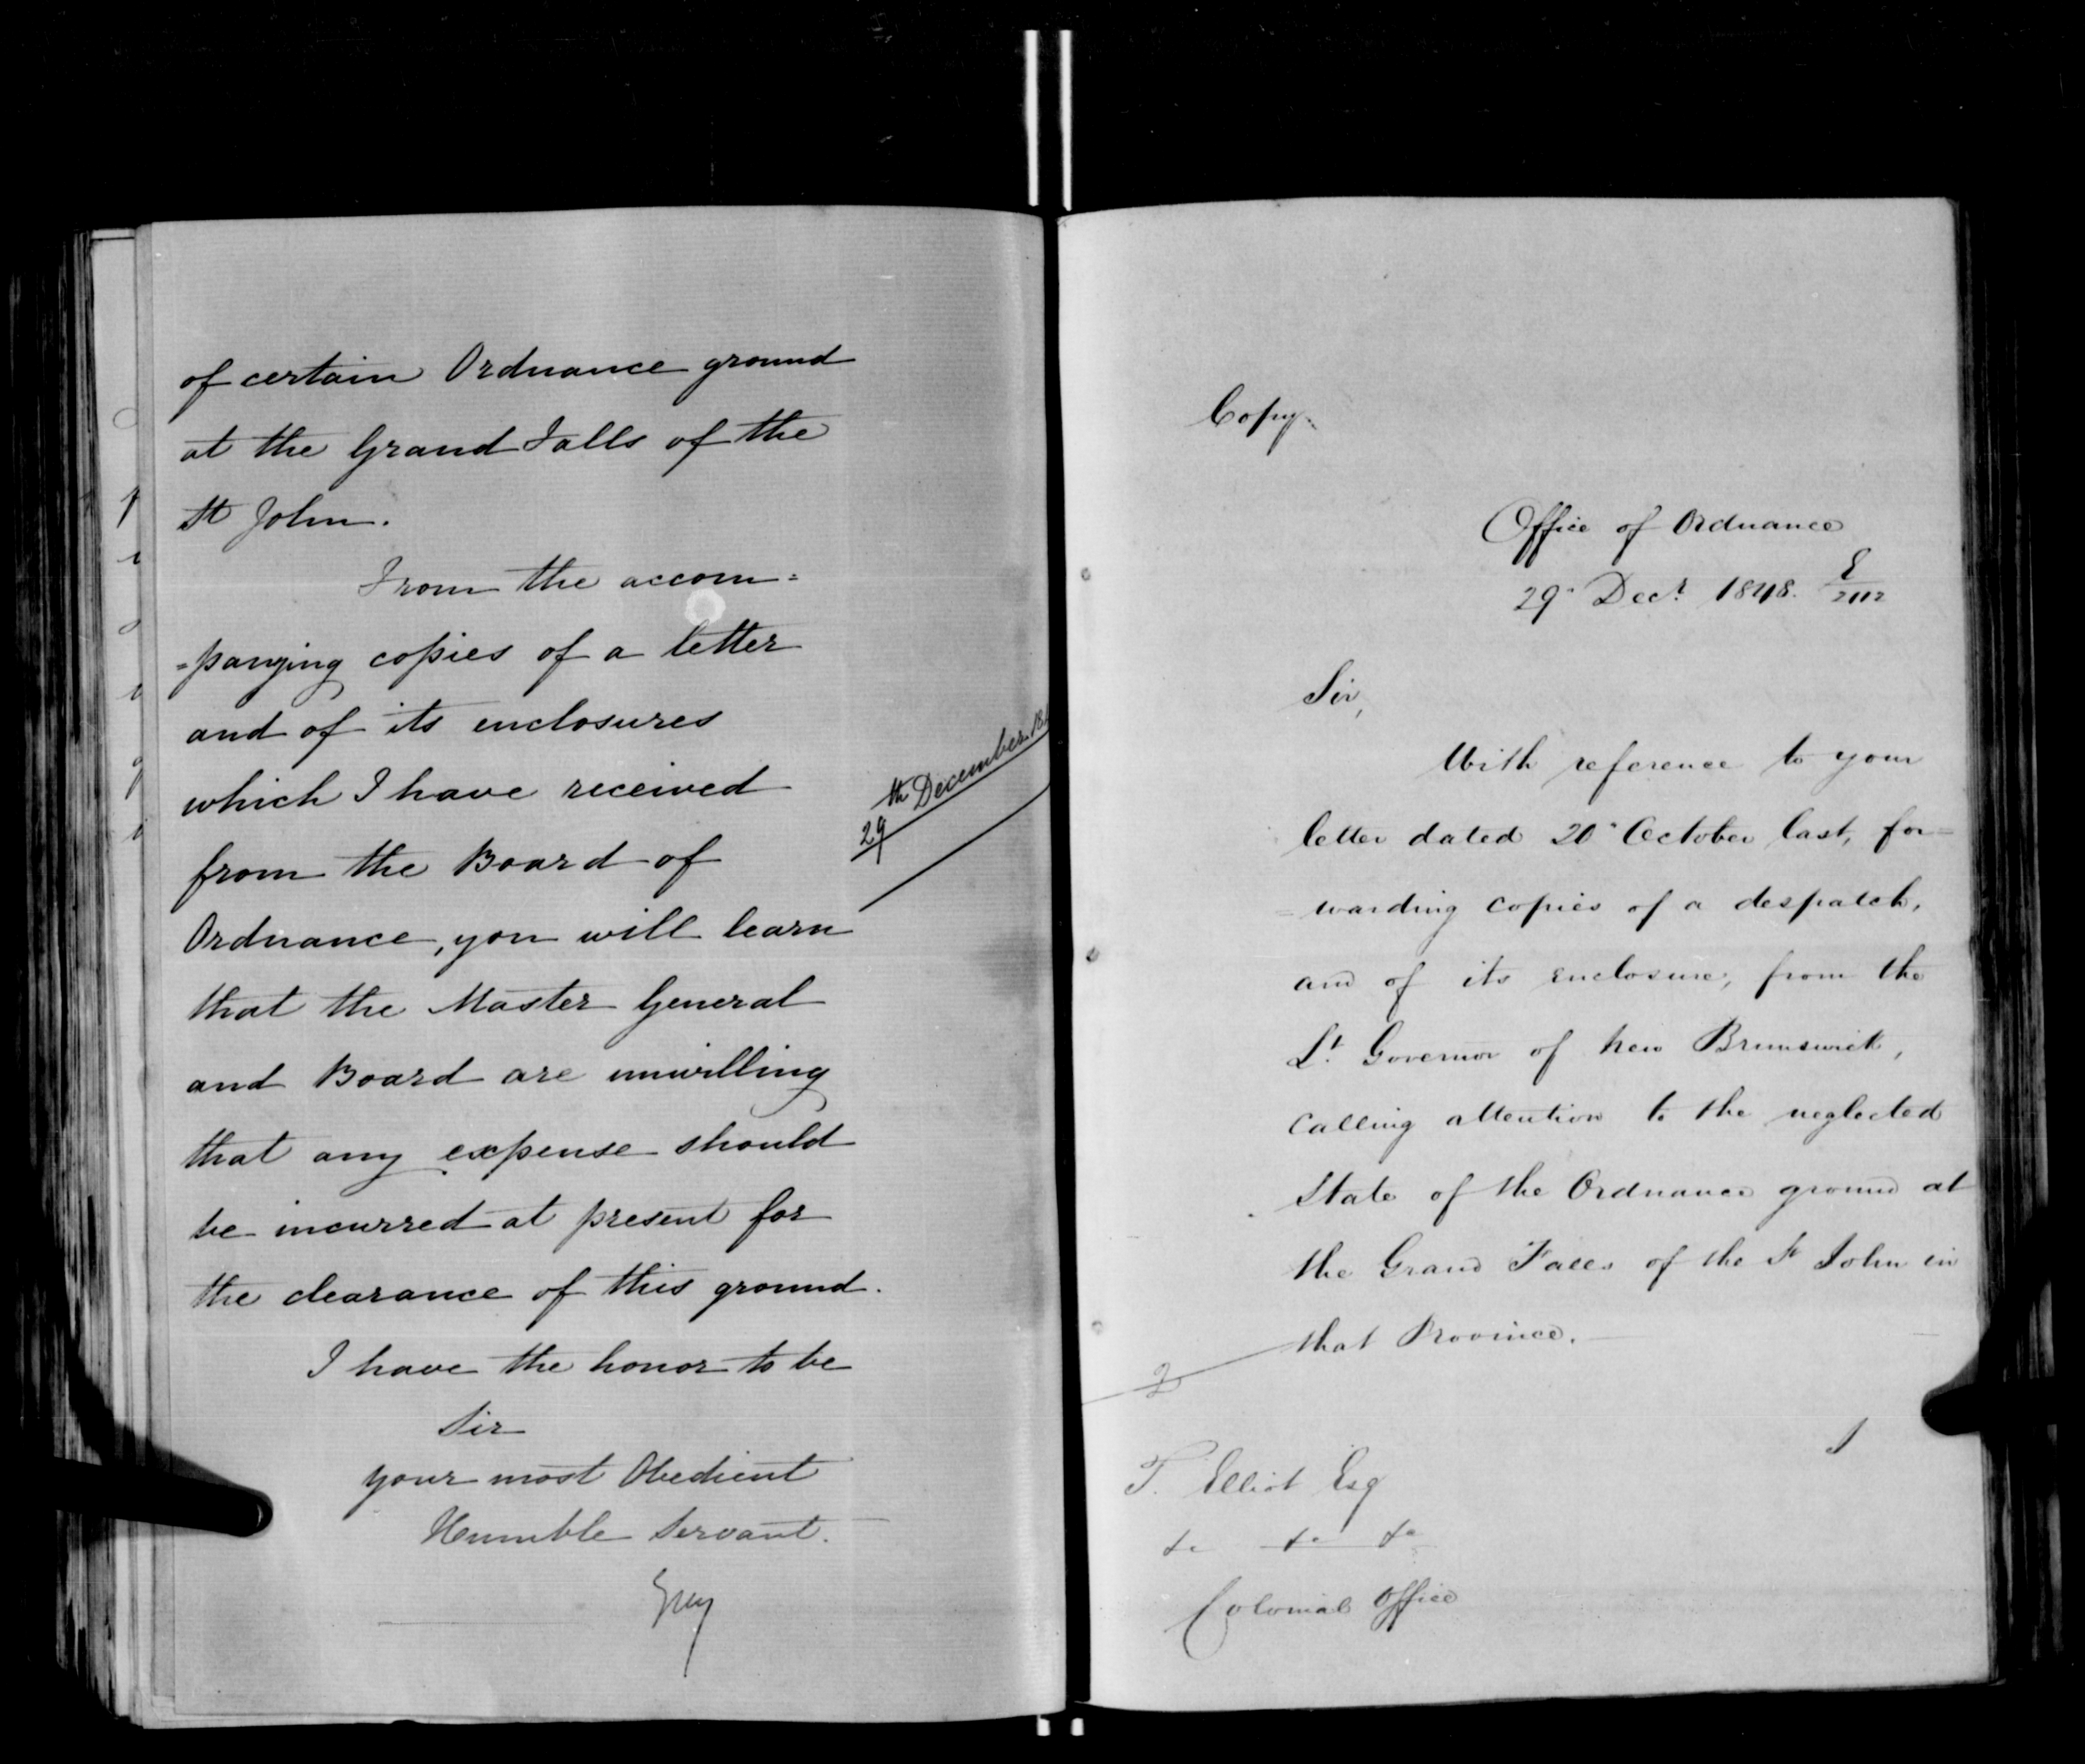 of certain Ordnance ground
at the Grand Falls of the
St John.
From the accom=
=panying copies of a letter
and of its enclosures
which I have received
from the Board of
Ordnance, you will learn
that the Master General
and Board are unwilling
that any expense should
be incurred at present for
the clearance of this ground.
I have the honor to be
Sir
your most Obedient
Humble Servant.
Grey
29th December 18
Copy.
Office of Ordnance
29 Decr 1848. E/2112
Sir,
With reference to your
letter dated 20 October last, for=
=warding copies of a despatch,
and of its enclosure, from the
Lt Governor of New Brunswick,
calling attention to the neglected
State of the Ordnance ground at
the Grand Falls of the St John in
that Province.
2
I
T. Elliot Esq
&c &c &c
Colonial Office